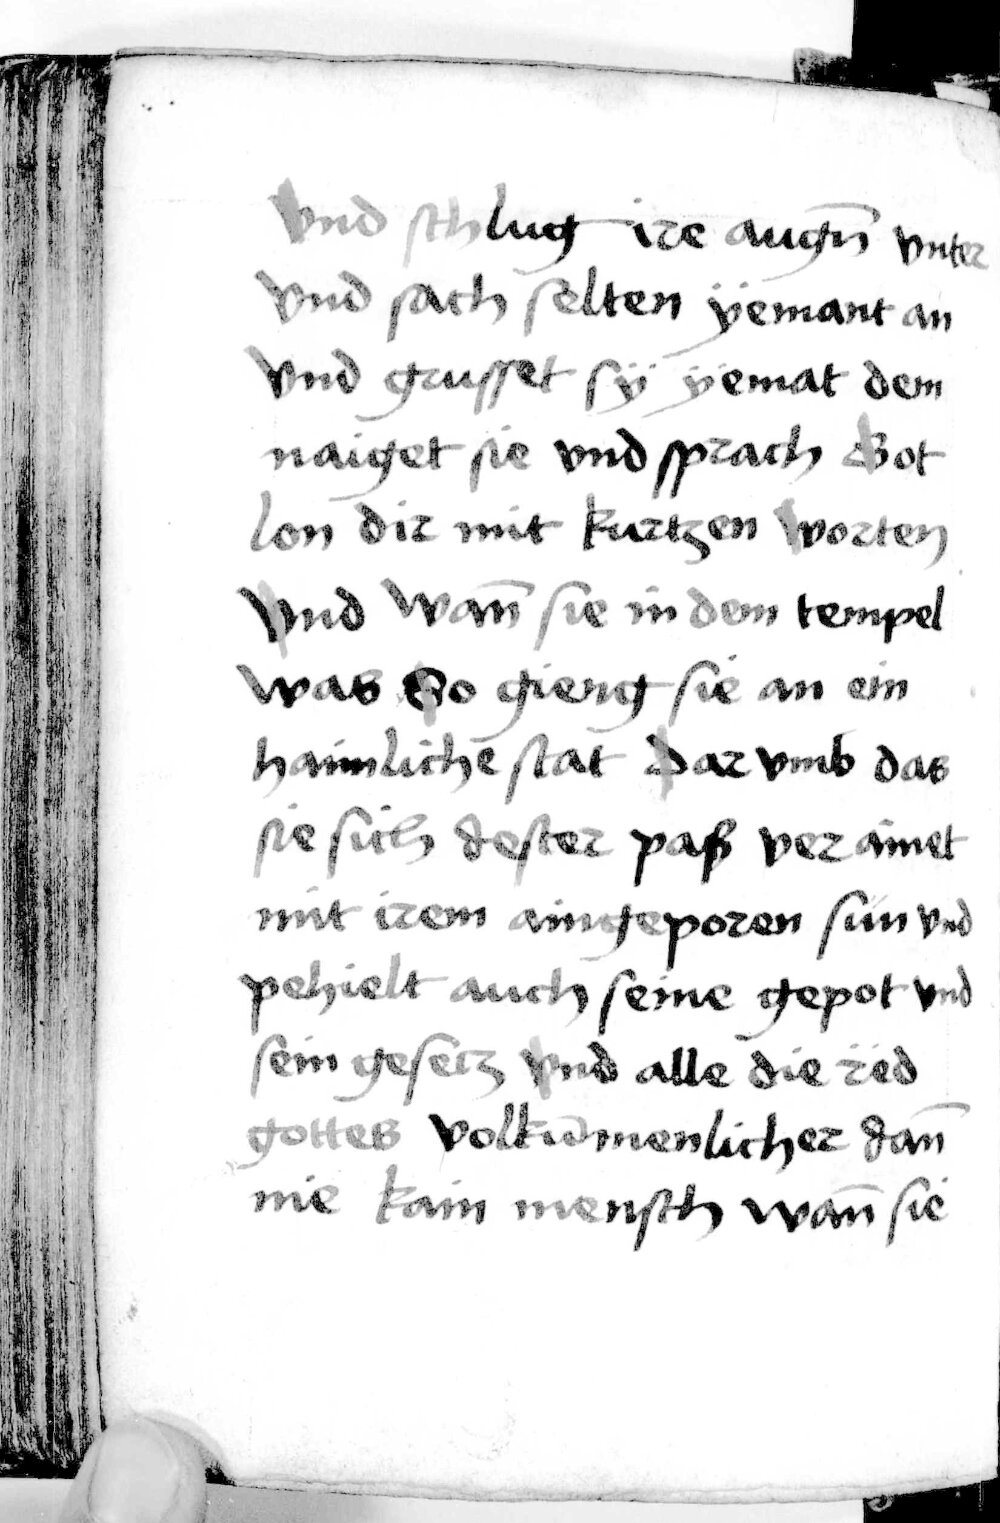 Vnd schlug ire augn̄ vnter
vnd sach selten ÿemant an
vnd grusset sÿ ÿemat dem
naiget sie vnd sprach Got
lon dir mit kurtzen worten
Vnd wan̄ sie in dem tempel
was So gieng sie an ein
haimliche stat Dar vmb das
sie sich dester paß ver ainet
mit irem aingeporen sun vnd
pehielt auch seine gepot vnd
sein gesetz vnd alle die red
gottes volkūmenlicher dan̄
nie kain mensch wan̄ sie